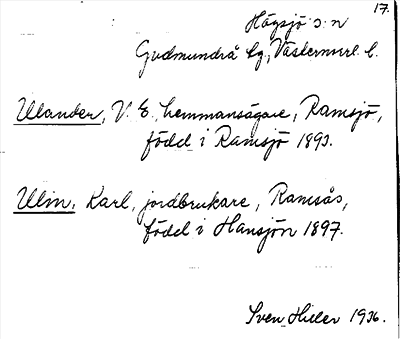 17.
Högsjö s:n
Gudmundrå tg, Västernorrl. l.
Ulander, V. E. hemmansägare, Ramsjö,
född i Ramsjö 1893.
Ulin, Karl, jordbrukare, Ramsås,
född i Hansjön 1897.
Sven Hiller 1936.